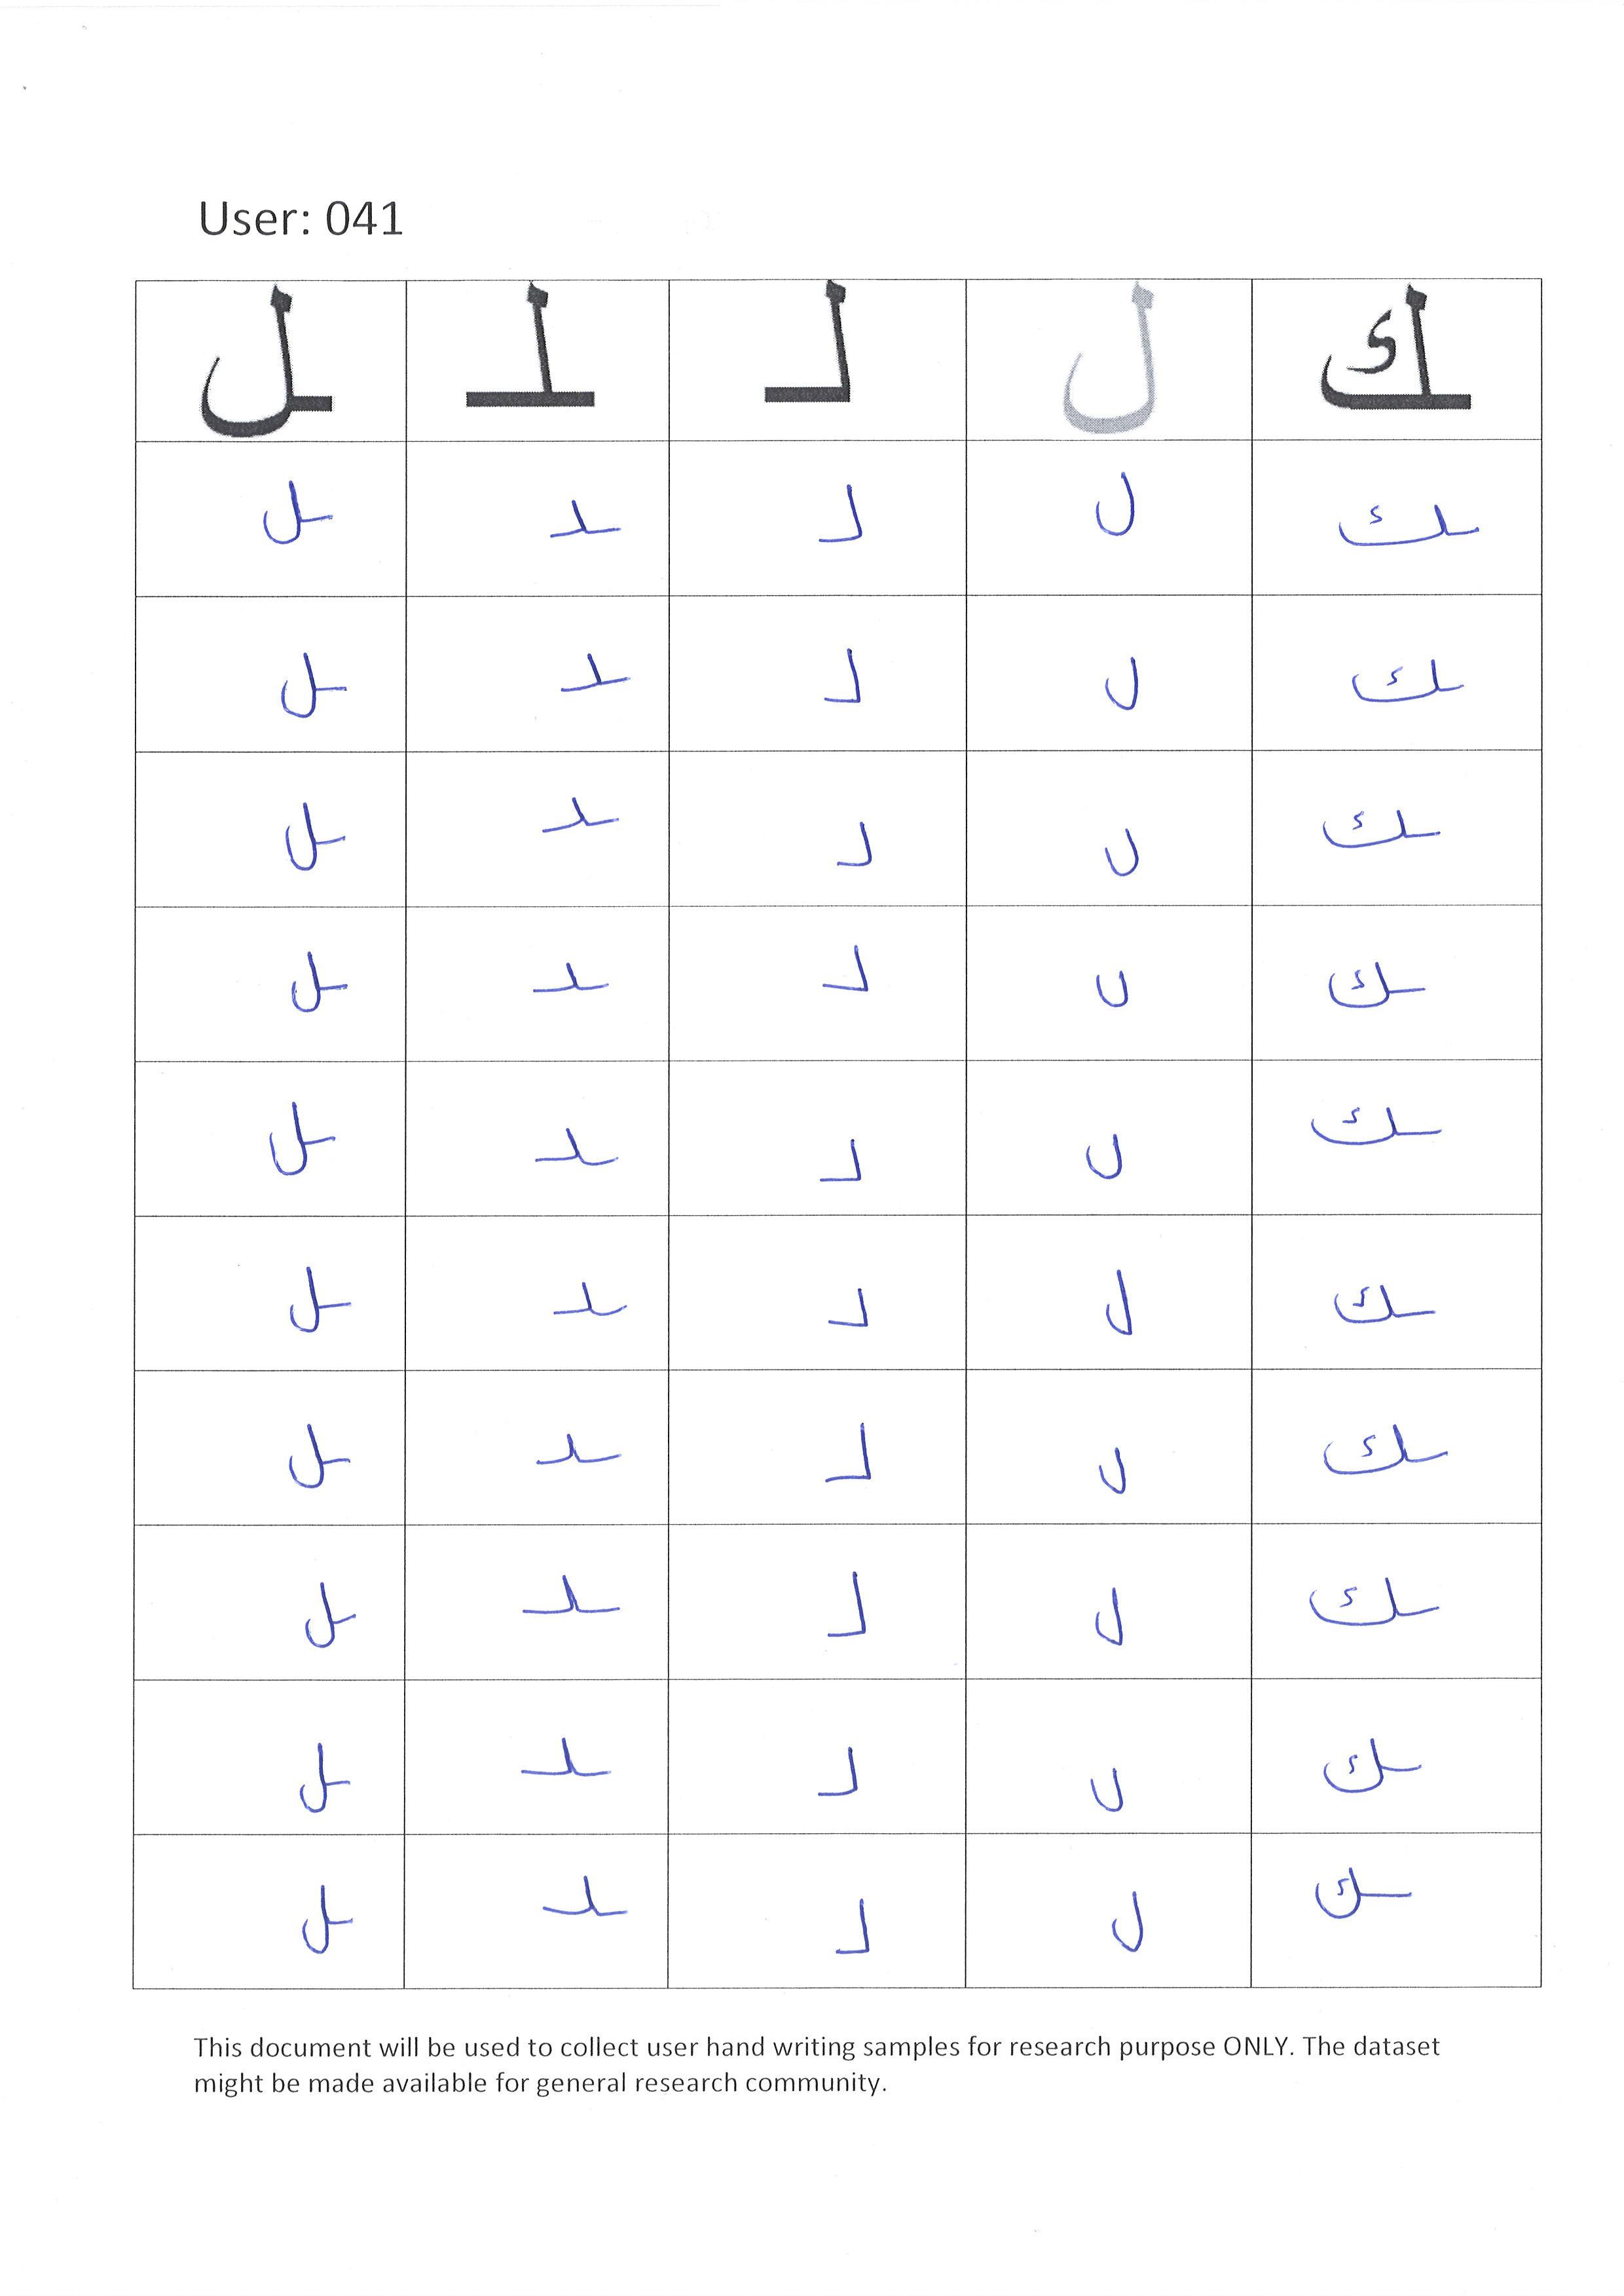 User: 041
ـك ل لـ ـلـ ـل
ـك ل لـ ـلـ ـل
ـك ل لـ ـلـ ـل
ـك ل لـ ـلـ ـل
ـك ل لـ ـلـ ـل
ـك ل لـ ـلـ ـل
ـك ل لـ ـلـ ـل
ـك ل لـ ـلـ ـل
ـك ل لـ ـلـ ـل
ـك ل لـ ـلـ ـل
ـك ل لـ ـلـ ـل
This document will be used to collect user hand writing samples for research purpose ONLY. The dataset
might be made available for general research community.